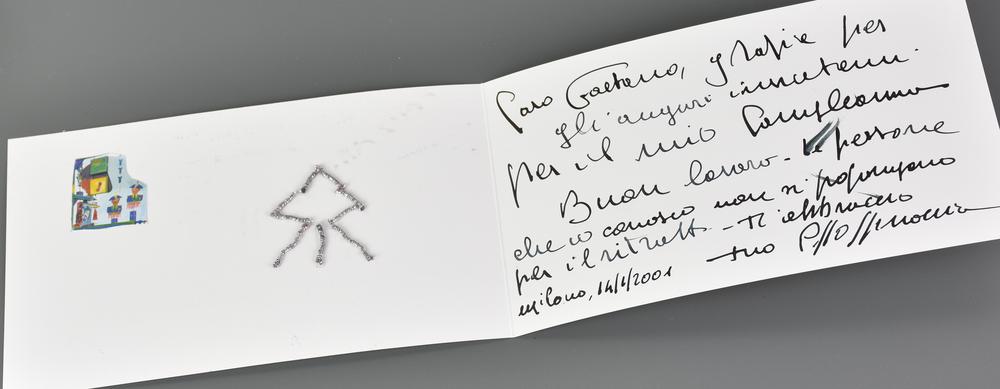 Caro Gaetano, grazie per
gli auguri inviatemi
per il mio Compleanno
Buon lavoro - le persone
che io conosco non si propongono
per il ritratto - Ti abbraccio
tuo
Milano, 14/1/2001